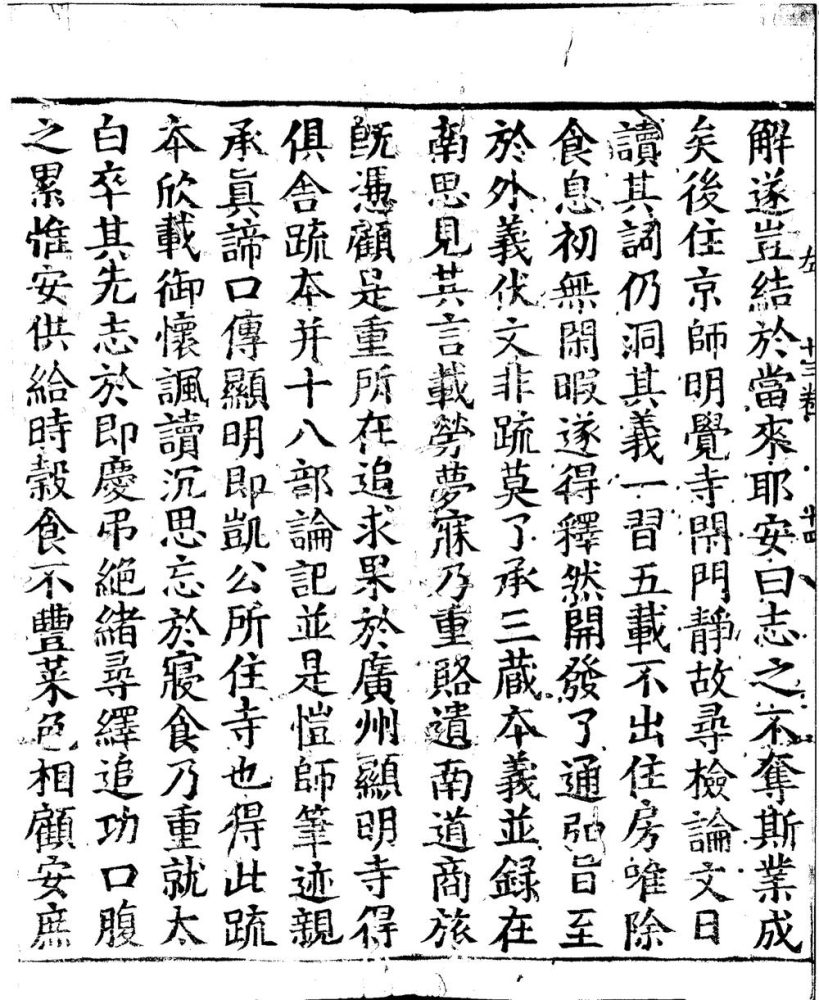 左 十三卷 十四
解遂豈結於當來耶安曰志之不奪斯業成
矣後住京師明覺寺閑門靜故尋檢論文日
讀其詞仍洞其義一習五載不出住房唯除
食息初無閑暇遂得釋然開發了通弘旨至
於外義伏文非疏莫了承三藏本義並録在
南思見其言載勞夢寐乃重賂遺南道商旅
既憑顧是重所在追求果於廣州顯明寺得
俱舍疏本并十八部論記並是愷師筆迹親
承眞諦口傳顯明即凱公所住寺也得此疏
本欣載御懷諷讀沉思忘於寢食乃重就太
白卒其先志於即慶吊絶緒尋繹追功口腹
之累惟安供給時穀食不豐菜色相顧安庶